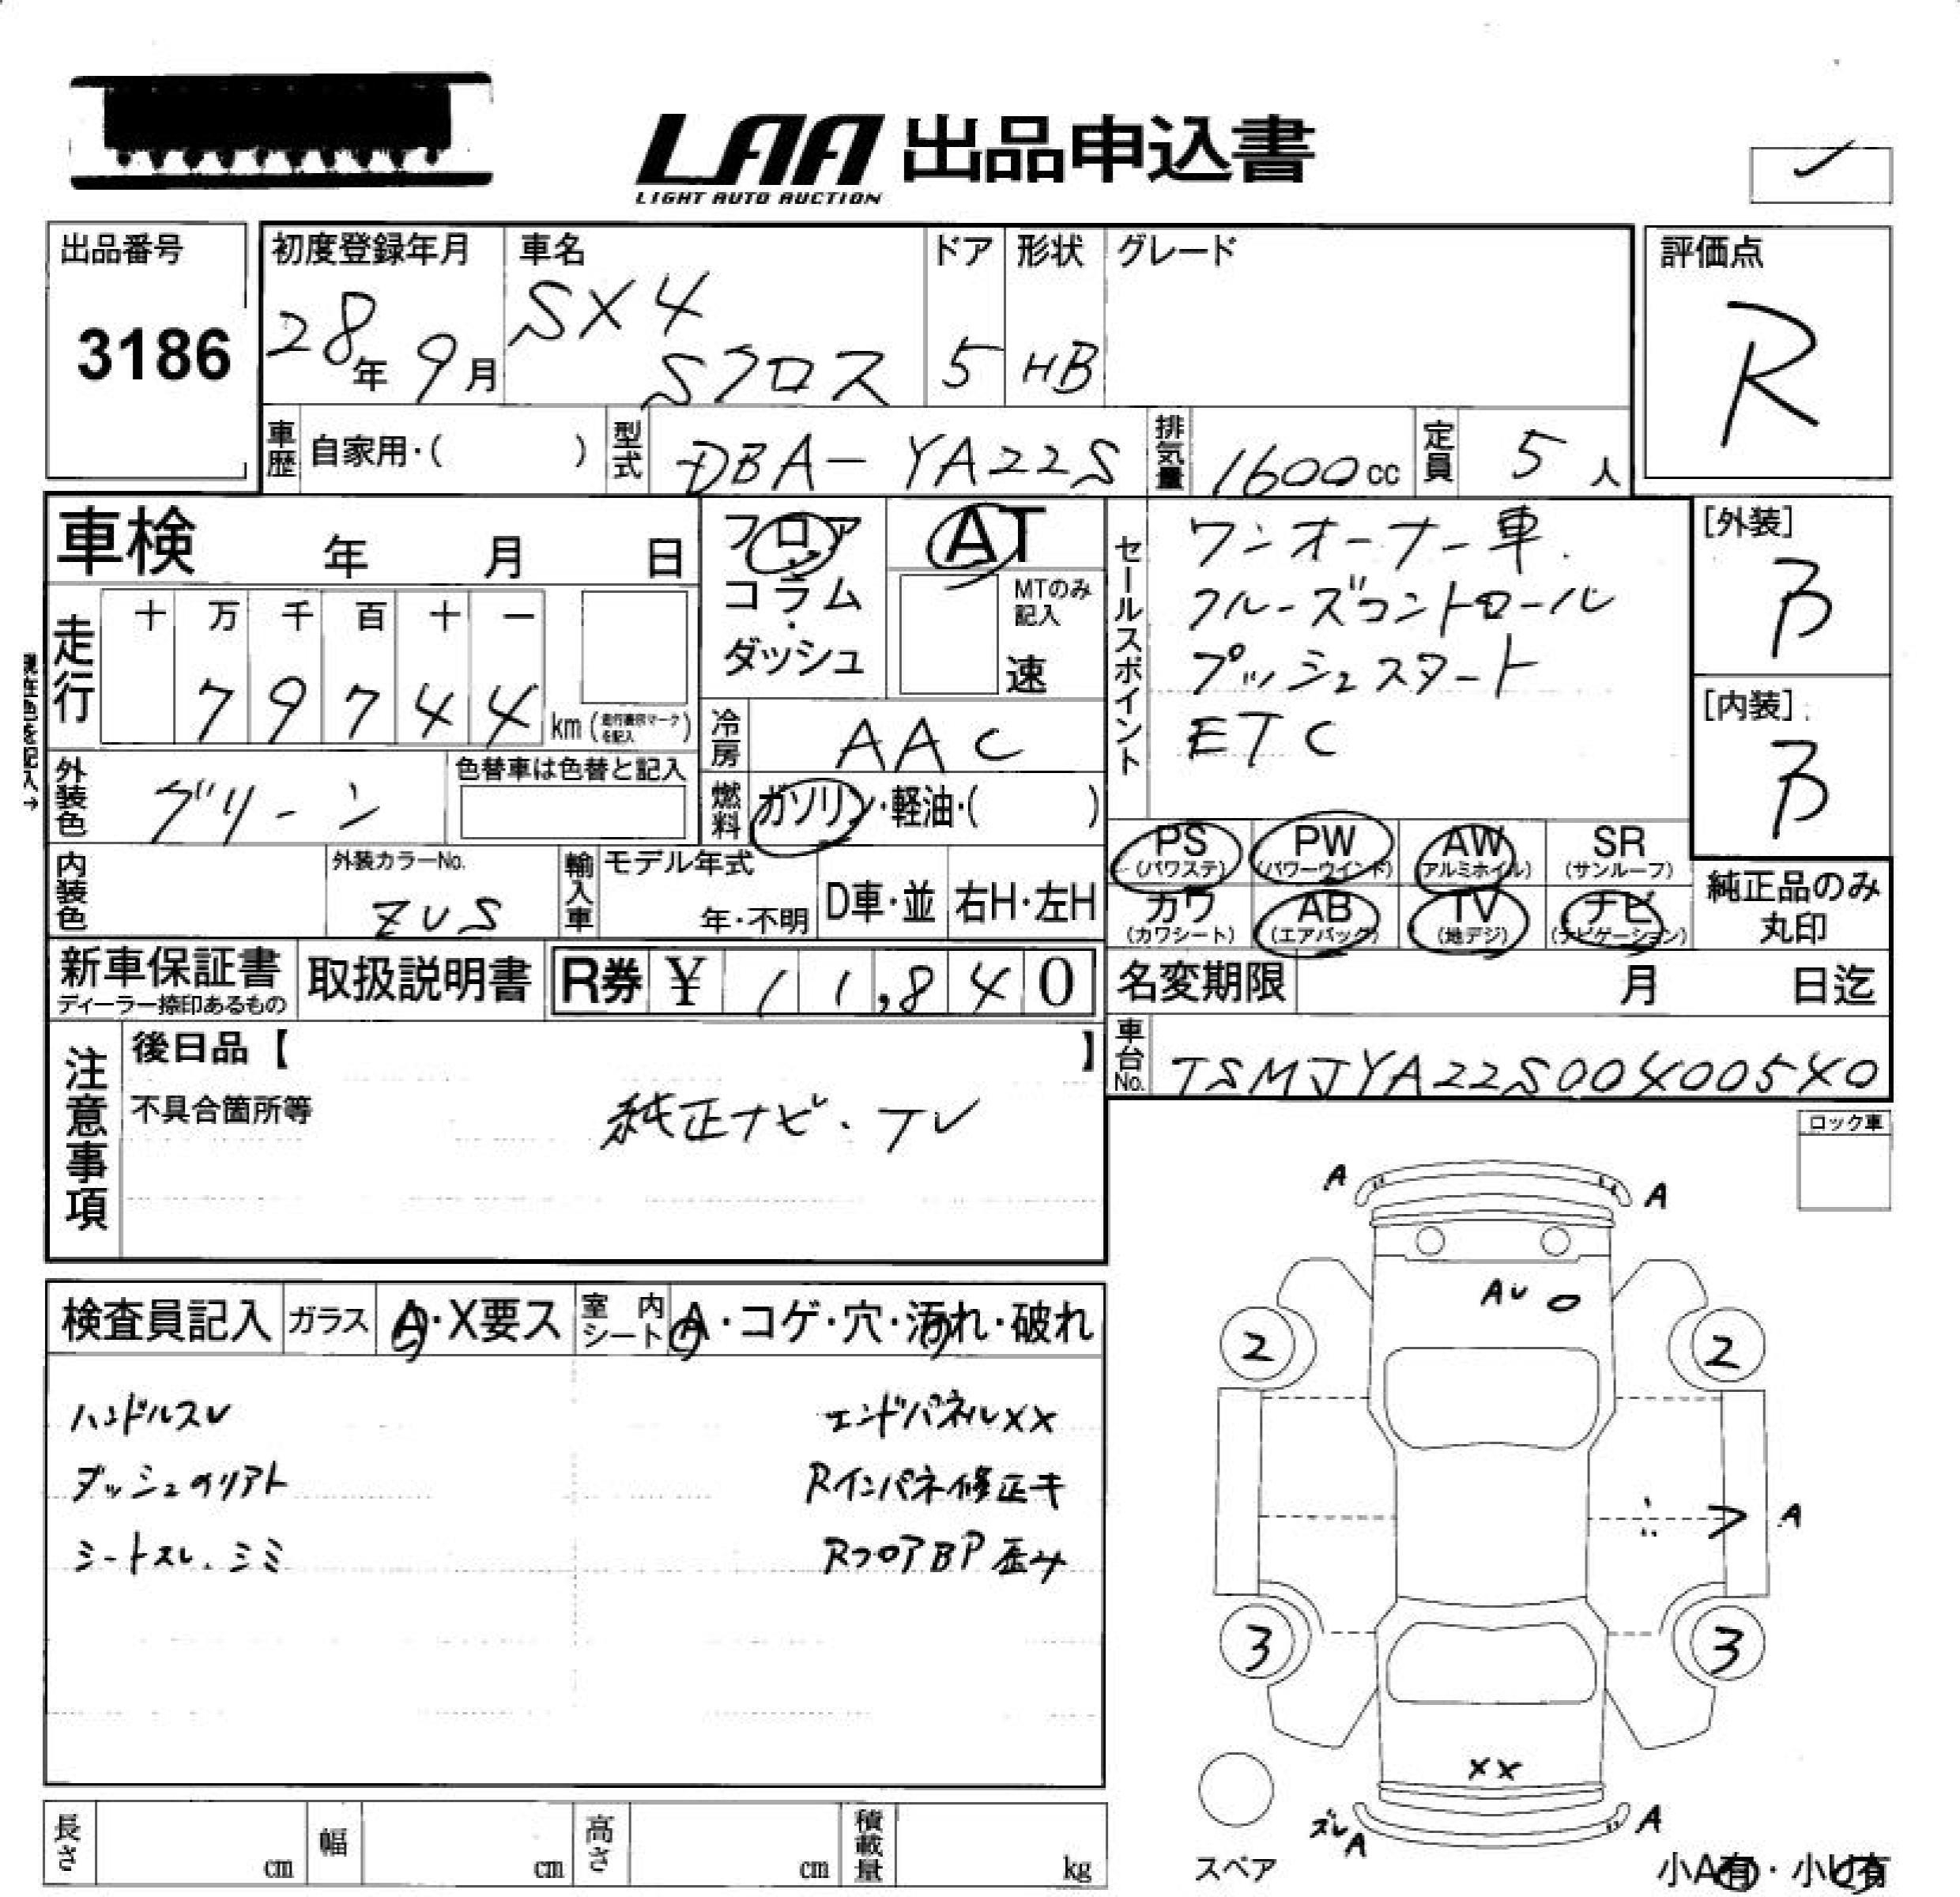 LAA 出品申込書
LIGHT AUTO AUCTION
出品番号
3186
初度登録年月
28年 9月
車名
SX4
Sクロス
ドア
5
形状
HB
グレード
評価点
R
車歴 自家用・( )
型式 DBA-YA22S
排気量 1600cc
定員 5人
車検 年 月 日
フロア
コラム
・
ダッシュ
AT
MTのみ
記入
速
セールスポイント
ワンオーナー車.
クルーズコントロール
プッシュスタート
ETC
[外装]
B
[内装]
B
現在色を記入→
走行
十 万 千 百 十 一
7 9 7 4 4 km
冷房 AAC
外装色 グリーン
色替車は色替と記入
燃料 ガソリン・軽油・( )
内装色
外装カラーNo.
ZUS
輸入車
モデル年式
年・不明
D車・並
右H・左H
PS (パワステ)
PW (パワーウインド)
AW (アルミホイル)
SR (サンルーフ)
カワ (カワシート)
AB (エアバッグ)
TV (地デジ)
ナビ (ナビゲーション)
純正品のみ
丸印
新車保証書
ディーラー捺印あるもの
取扱説明書
R券 ¥ 1 1,8 4 0
名変期限 月 日迄
車台No. TSMJYA22S00400540
注意事項
後日品【 】
不具合箇所等
純正ナビ・TV
ロック車
検査員記入
ガラス A・X要ス
室内シート A・コゲ・穴・汚れ・破れ
ハンドルスレ
ダッシュのリアト
シートスレ、シミ
エンドパネルXX
Rインパネ修正キ
RフロアBP歪み
A
A
AU
2
2
A
3
3
XX
ズレA
A
スペア
小A有・小U有
長さ cm
幅 cm
高さ cm
積載量 kg